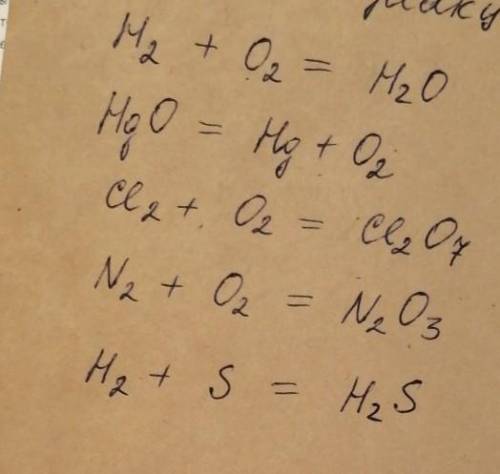 H₂ + O₂ = H₂O
HgO = Hg + O₂
Cl₂ + O₂ = Cl₂O₇
N₂ + O₂ = N₂O₃
H₂ + S = H₂S